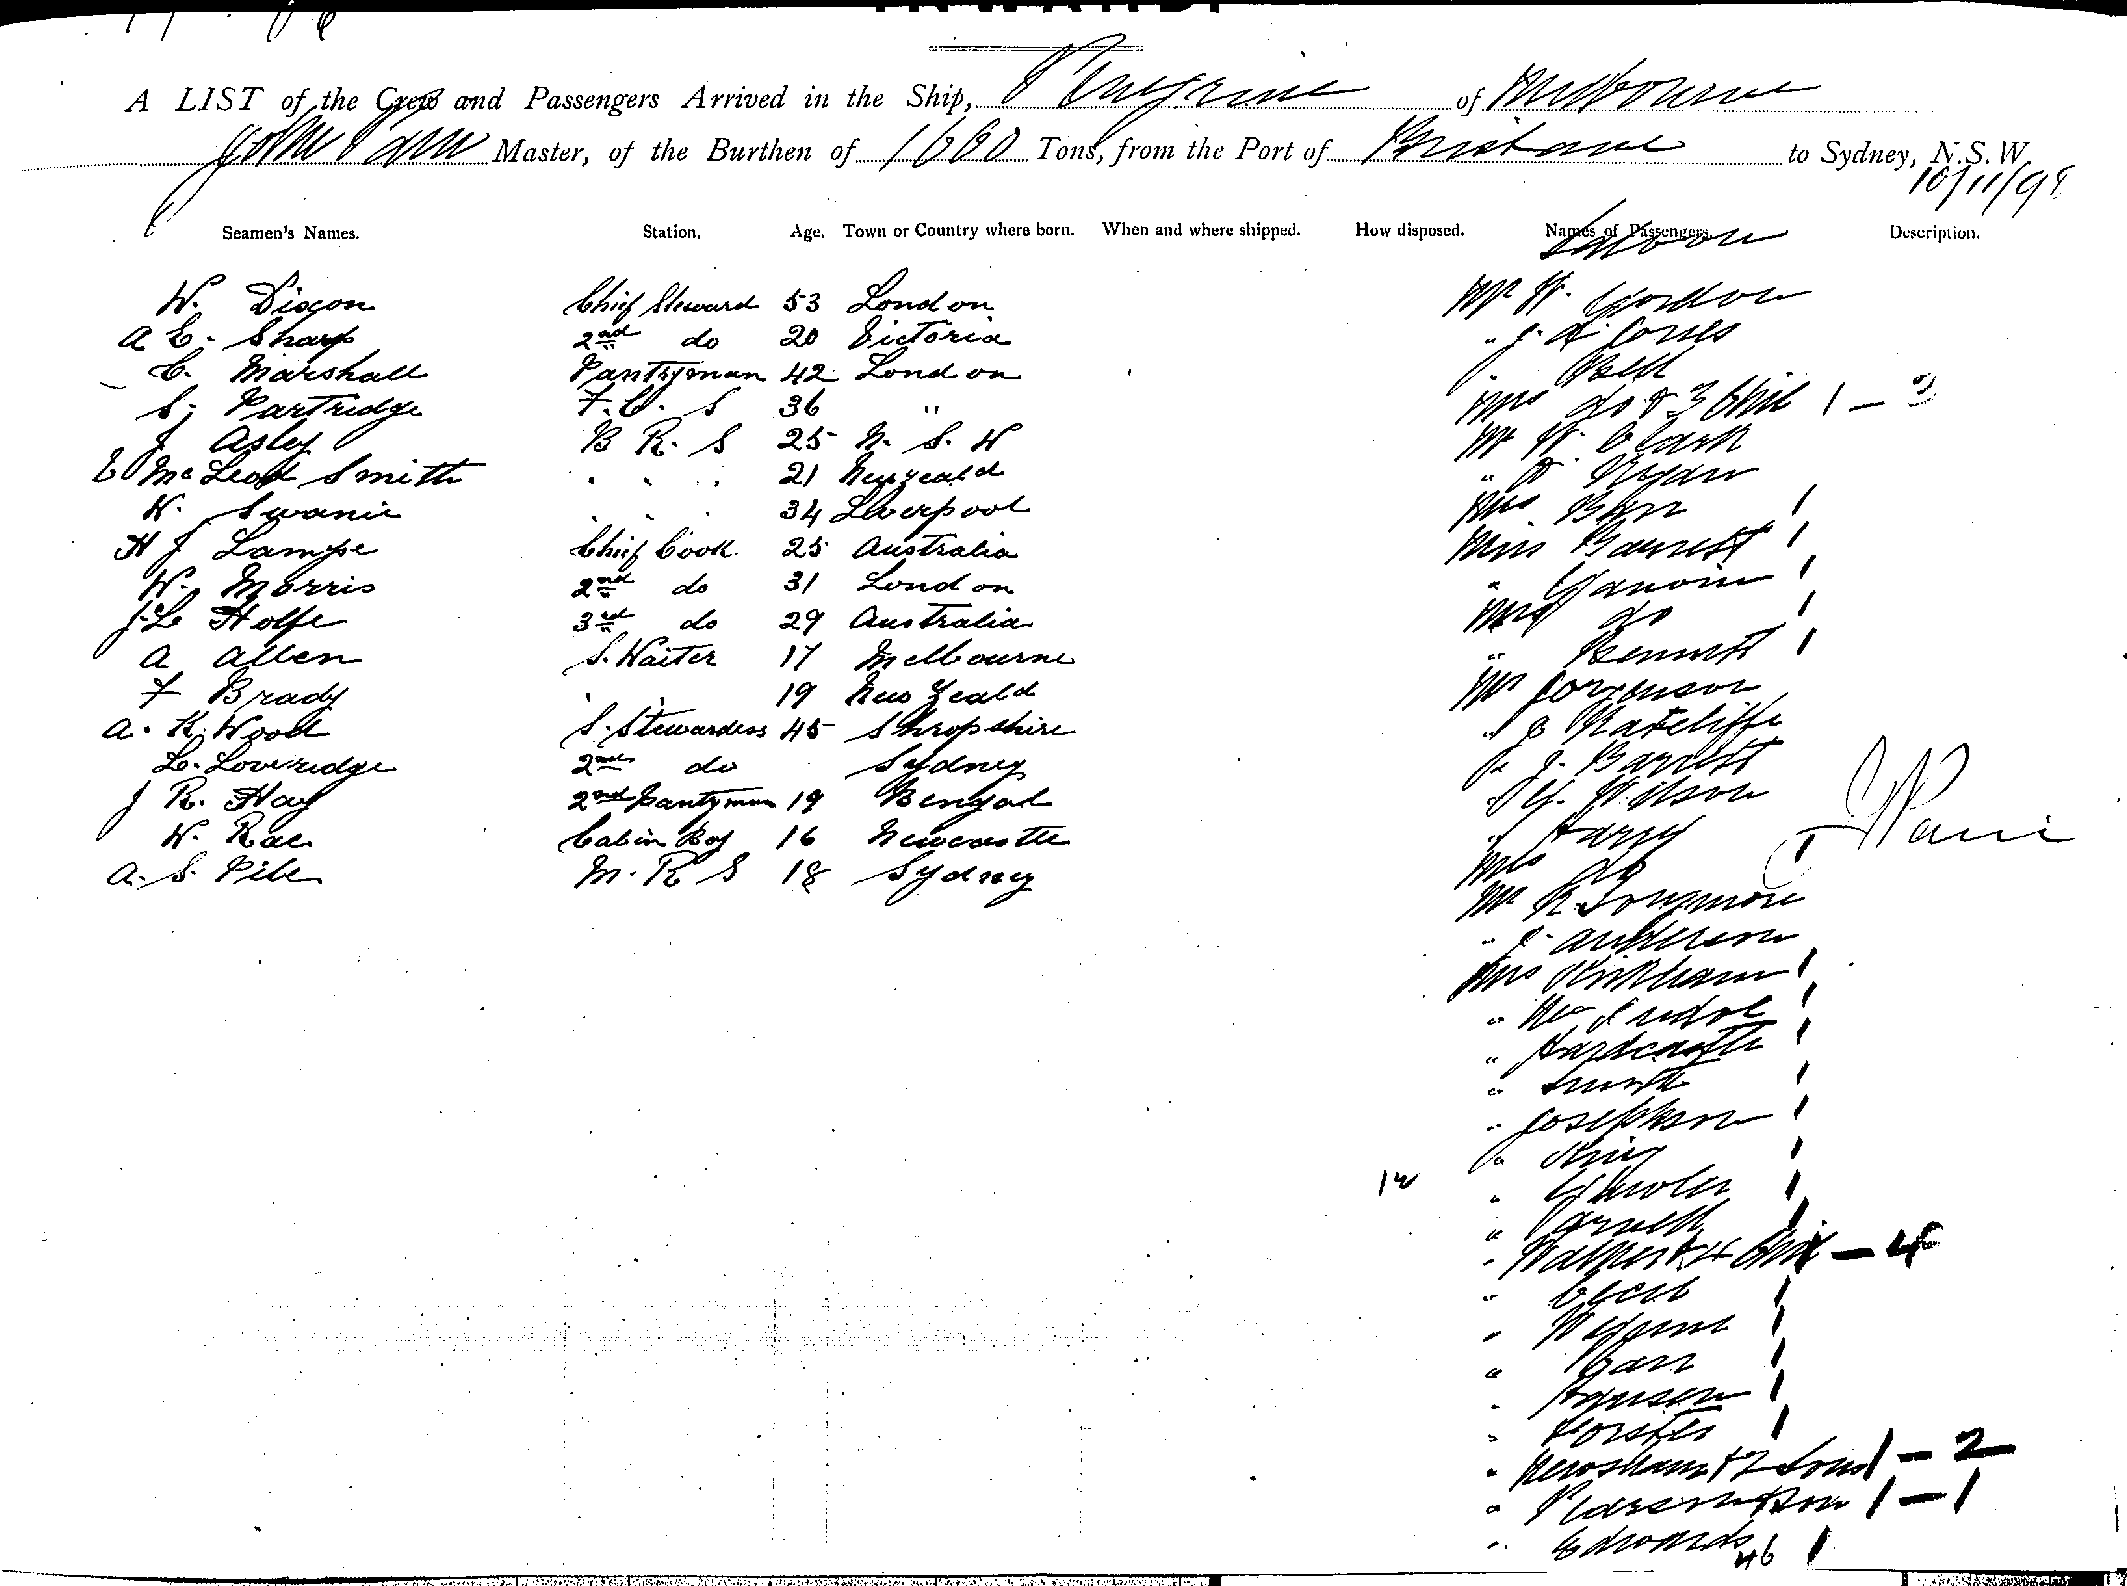 A LIST of the Crew and Passengers Arrived in the Ship, Peregrine of Melbourne
John Pain Master, of the Burthen of 1660 Tons, from the Port of Brisbane to Sydney, N.S.W.
10/11/98
Seamen's Names. Station. Age. Town or Country where born. When and where shipped. How disposed. Names of Passengers. Description.
Saloon
W. Dixon Chief Steward 53 London Mr W. Gordon
A E. Sharp 2nd do 20 Victoria " J. A. Jones
C. Marshall Pantryman 42 London " Bell
S. Partridge F.C. S 36 " Mrs do & 3 Chil 1 – 3
J Asley B R. S 25 N. S. W Mr W. Clark
E McLeod Smith . . . 21 New Zeald " Ryan
W. Swanie . . . 34 Liverpool Mrs 1
H J Lampe Chief Cook 25 Australia Miss Barrett 1
W. Morris 2nd do 31 London " 1
J. L Holfe 3rd do 29 Australia Mrs do 1
A Allen S. Waiter 17 Melbourne " Bennett 1
F Brady . . 19 New Zeald Mr Jorgenson
A. K. Wood S. Stewardess 45 Shropshire " J Ratcliffe
L. Loveridge 2nd do Sydney " J. Barrett
J R. Hay 2nd Pantyman 19 Bengal " Wilson
W. Rae Cabin Boy 16 Newcastle " Harry
A. S. Pile M. R S 18 Sydney Mrs do 1
J Pain
Mr R. Longmore
" J. Anderson
Mrs Kirkham 1
" 1
" Hardcastle 1
" Smith 1
" Josephson 1
" King 1
" 1
" 1
" Walker & 4 Chil 1 – 4
" Cecil 1
" 1
" Carr 1
" Hansen 1
" Forster 1
" Newsham & 2 Sons 1 – 2
" Pearson & Son 1 – 1
" Edwards 1
46